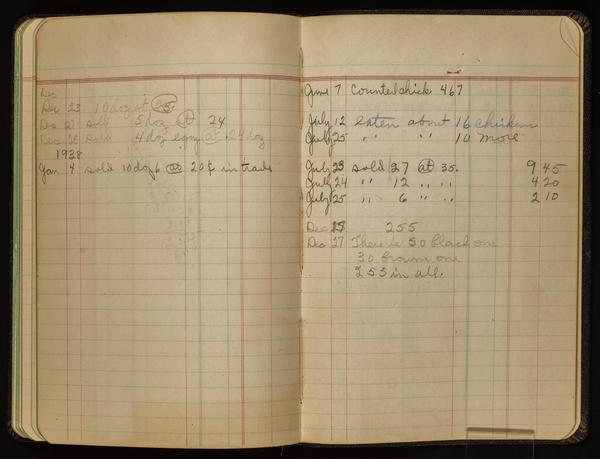 Dec
Dec 23 10 doz at 25
Dec 27 sold 5 doz at 24
Dec 28 sold 4 doz eggs at 24 doz
1938
Jan 4 sold 10 doz 6 at 20¢ in trade
June 7 Counted chick 467
July 12 eaten about 16 chickens
July 25 " " 10 more
July 23 sold 27 at 35. 9 45
July 24 " 12 " " 4 20
July 25 " 6 " " 2 10
Dec 25 255
Dec 27 There is 50 black one
30 brown one
253 in all.